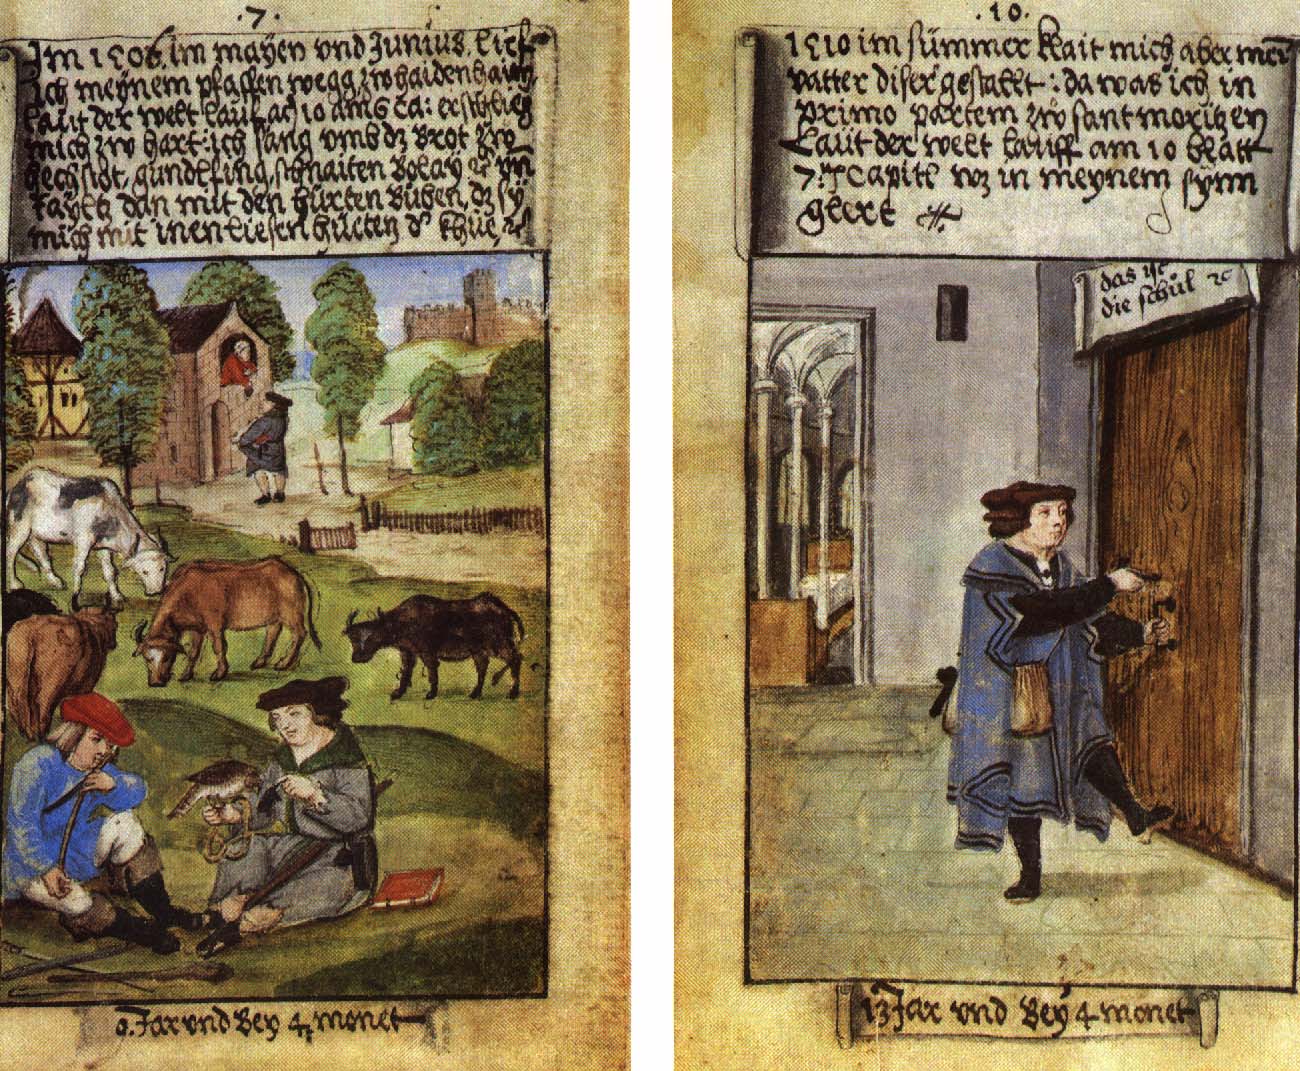 .7.
Im 1506. im mayen vnd Junius. lieff
ich meynem pfaffen wegg, zw haidenhaim,
laut der welt lauf, ac 10 am 6 ca: er schlueg
mich zw hart: ich sang vmb dz Brot zw
hechstet, gundlfing, schnaiten Bolay
dan mit den hürten Buben, dz sy
mich mit inen liesen hüeten d khüe, ꝛc
9. Jar vnd Bey 4 monet
.10.
1510 im sümmer klait mich aber mein
vatter diser gestallt : da was ich in
primo partem zw sant moritzen
laut der welt lauff am 10 blatt
7. capitl wz in meynem synn
glert
das ist
die schůl ꝛc
13 Jar vnd Bey 4 monet